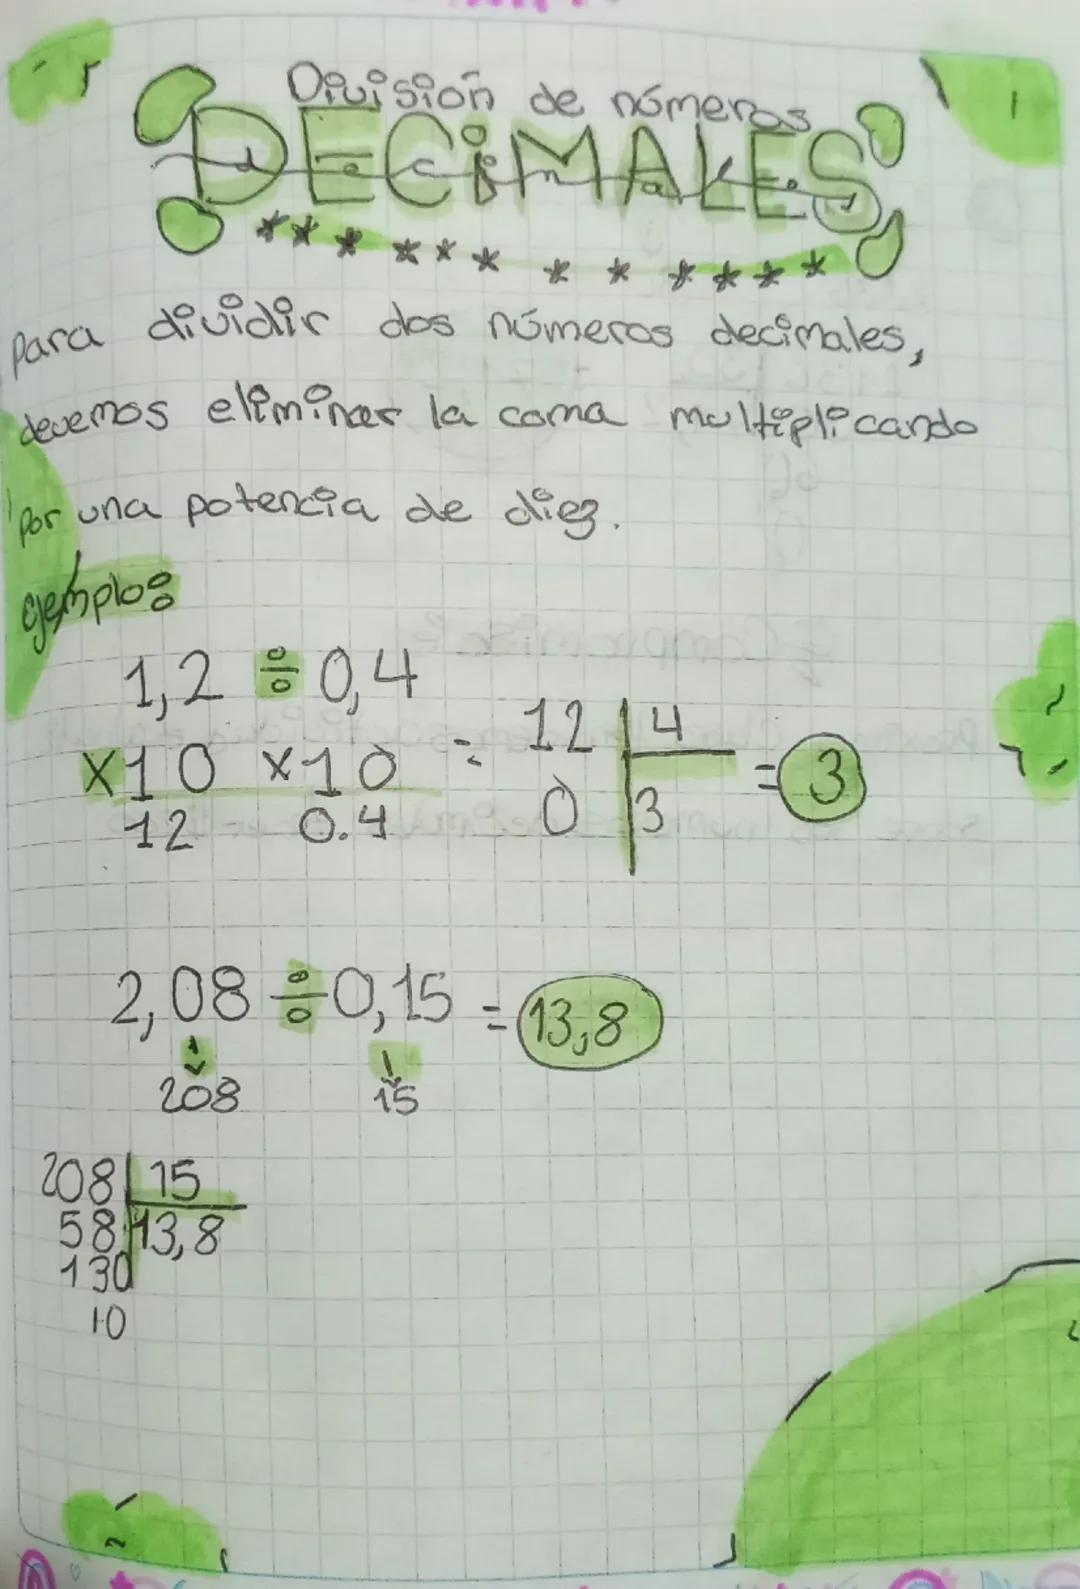 División de números
DECIMALES
decimales
para dividir dos números decimales,
devemos eliminar la coma multiplicando
por una potencia de diez.
ejemplo:
1,2 ÷ 0,4
x10 x10 = 12 | 4 = 3
12 0.4 0 | 3
2,08 ÷ 0,15 = 13,8
208 15
208 | 15
58 | 13,8
130
10